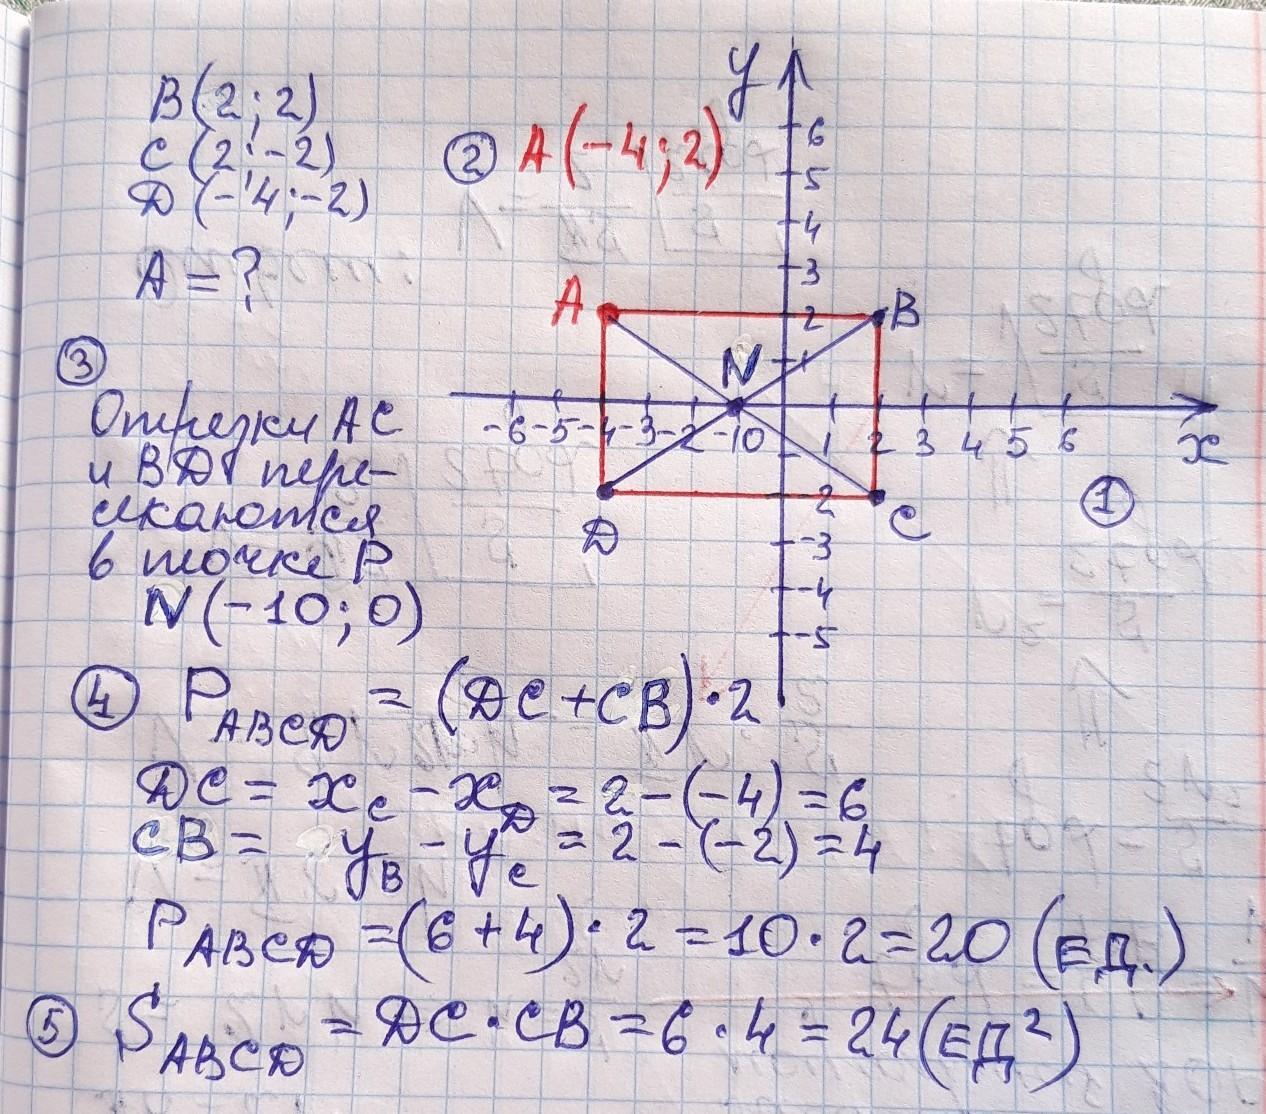 B(2;2)
C(2;-2)
D(-4;-2)
A=?
② A(-4;2)
y
6
5
4
3
A
2
B
N
1
-6 -5 -4 -3 -2 -10 1 2 3 4 5 6
x
①
D
2
C
-3
-4
-5
③
Отрезки AC
и BD пере-
секаются
в точке P
N(-10;0)
④ P_ABCD = (DC+CB)·2
DC = x_C - x_D = 2-(-4)=6
CB = y_B - y_C = 2-(-2)=4
P_ABCD =(6+4)·2=10·2=20 (ЕД.)
⑤ S_ABCD = DC·CB = 6·4=24(ЕД²)